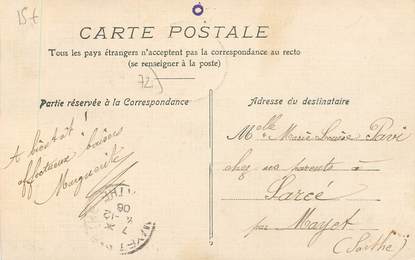 15t
CARTE POSTALE
Tous les pays étrangers n'acceptent pas la correspondance au recto
(se renseigner à la poste)
72
Partie réservée à la Correspondance
Adresse du destinataire
A bientôt !
affectueux baisers
Marguerite
Melle Marie Louise Pavi
chez ses parents à
Sarcé
par Mayet
(Sarthe)
MAYET
7
4-12
06